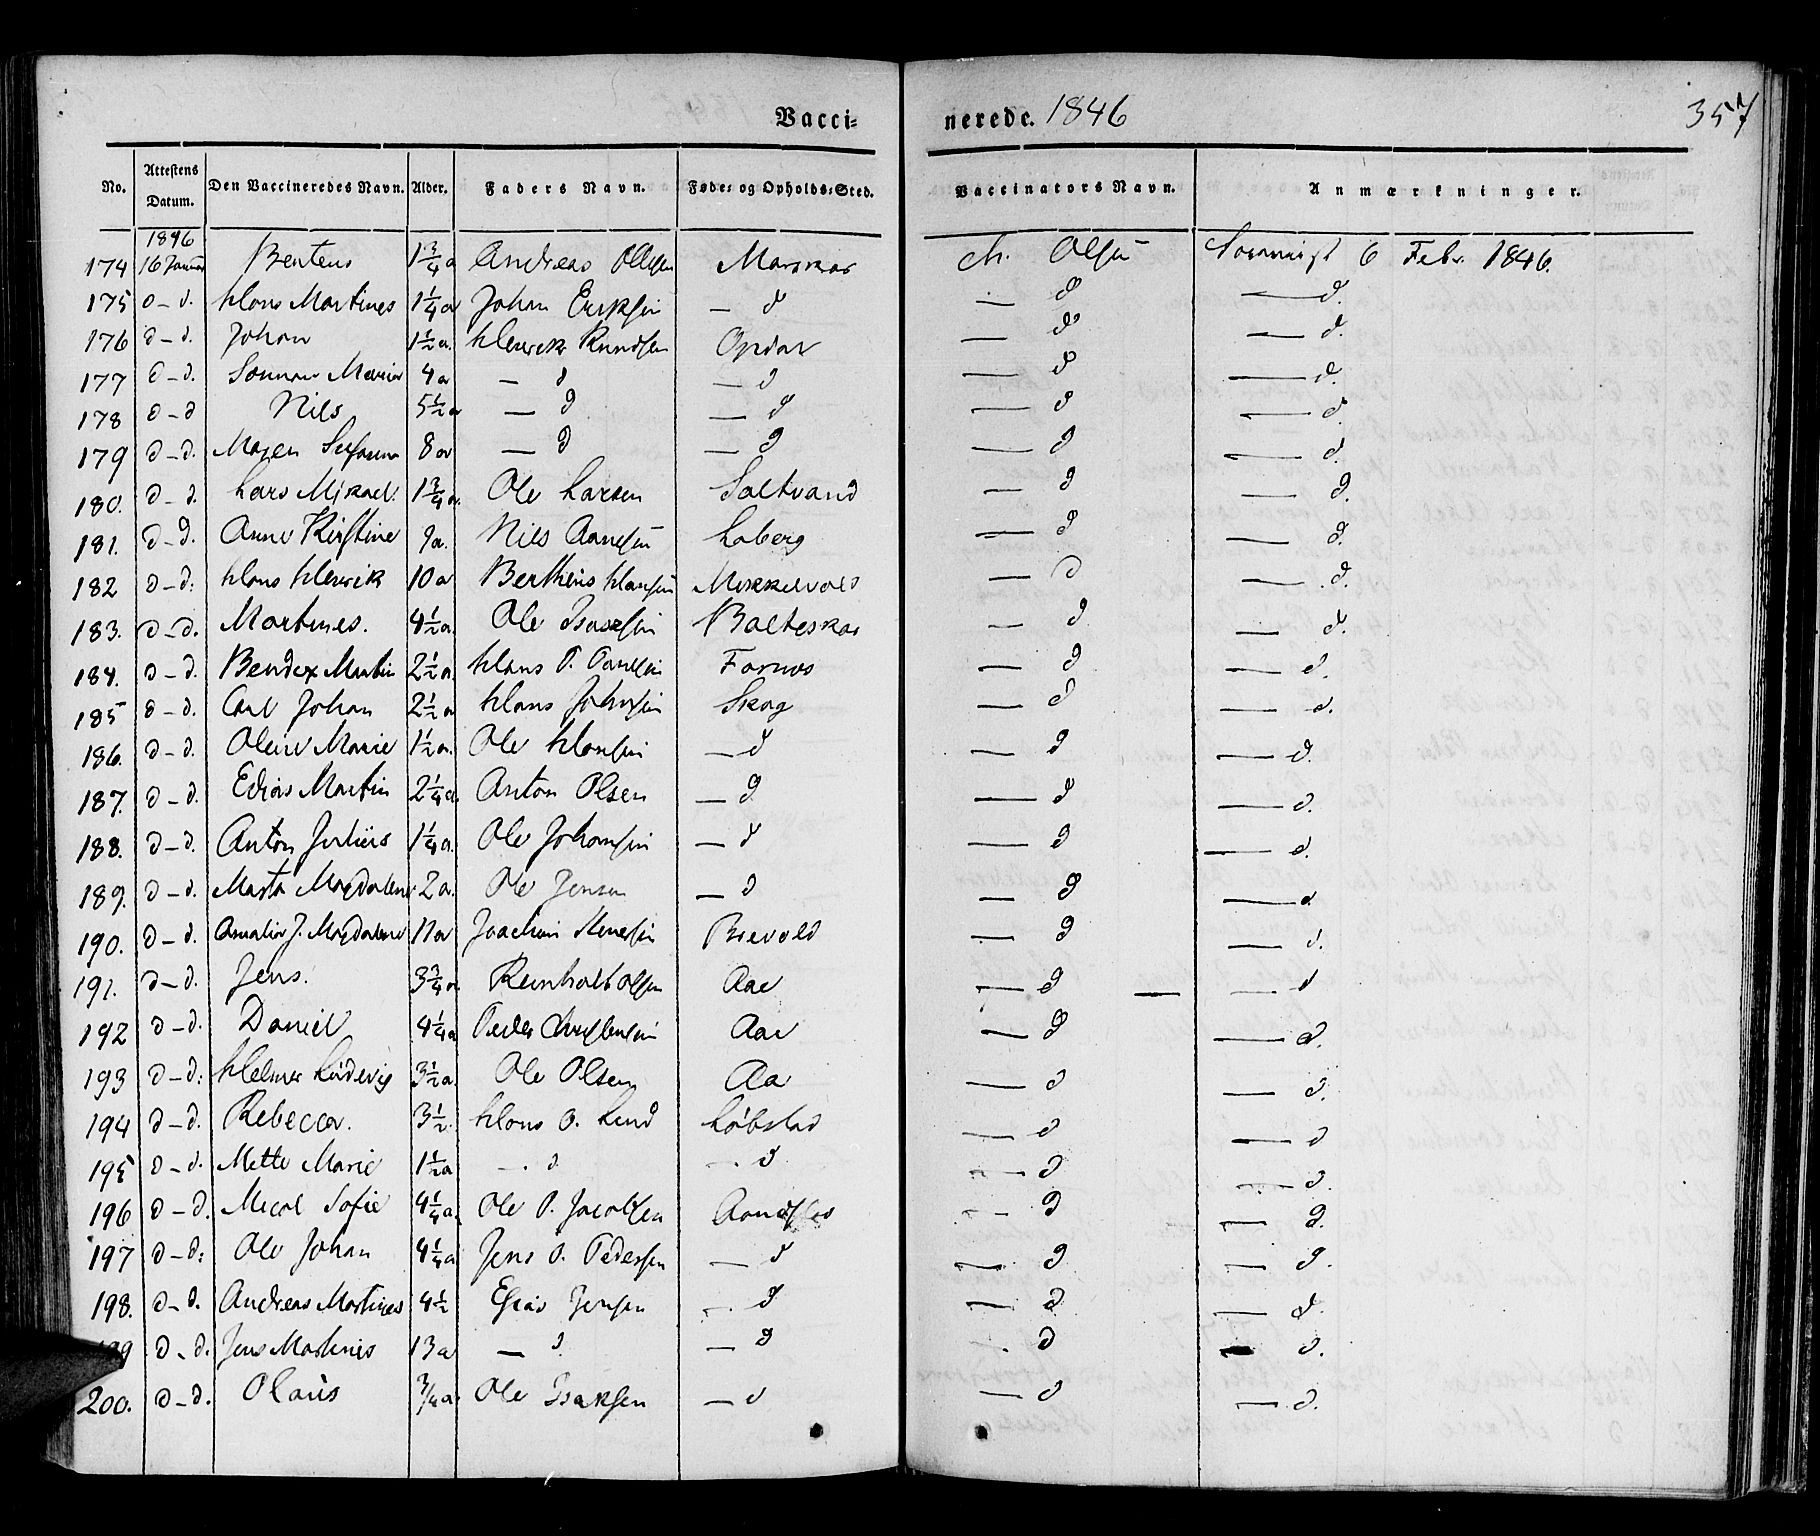 Vacci= nerede. 1846 357
No. Attestens Datum. Den Vaccineredes Navn. Alder. Faders Navn. Føde= og Opholds=Sted. Vaccinators Navn. Anmærkninger.
1846
174 16 Januar Bentens 1 3/4 a Andreas Olsen Marskar Olsen 6 Febr. 1846.
175 d - d. Hans Martines 1 1/4 a Johan Eriksen — d — d — d.
176 d - d. Johan 1 1/2 a. Henrik Knudsen — d — d.
177 d - d. Maria 4 a — d — d — d — d.
178 d - d Nils 5 1/2 a — d — d — d — d.
179 d - d. Maren 8 a — d — d — d — d.
180. d - d. Lars Mikael. 1 3/4 a. Ole Larsen Saltvand — d — d.
181. d - d. Anne Kirstine 9 a. Nils Laberg — d — d.
182 d - d: Hans Henrik 10 a Berthins Hansen — d — d.
183. d - d. Martines. 4 1/2 a. Ole Isaksen Balteskar — d — d.
184. d - d. Bendex Martin 2 1/2 a. Hans P. Fornes — d — d.
185 d - d. Carl Johan 2 1/2 a Hans Johnsen Skog — d — d.
186. d - d. Oline Marie 1 1/2 a. Ole Hansen — d — d — d.
187. d - d. Edias Martin 2 1/4 a Anton Olsen — d — d — d.
188. d - d. Anton Julius 1 1/4 a. Ole Johansen — d — d — d.
189. d - d. Marta Magdalene 2 a. Ole Jensen — d — d — d
190. d - d. Amalia J. Magdalene 11 a Joachim — d — d.
191. d - d. Jens. 3 3/4 a Reinholt Olsen Aae — d — d
192 d - d. Daniel 4 1/4 a Peder Christensen Aae — d — d.
193 d - d: Helmer Ludevig 3 1/2 a. Ole Olsen Aa — d — d.
194 d - d. Rebecca. 3 1/2. Hans O. Lund Løbstad — d — d
195 d - d. Mette Marie 1 1/2 a — d — d — d — d.
196 d - d. Mecal Sofie 4 1/4 a. Ole P. Jacobsen — d — d.
197 d - d: Ole Johan 4 1/4 a Jens O. Pedersen — d — d — d.
198. d - d. Andreas Martines 4 1/2 Esias Jensen — d — d — d.
199 d - d. Jens Martines 13 a — d. — d — d — d.
200. d - d. Olaus 3/4 a. Ole Isaksen — d — d — d.